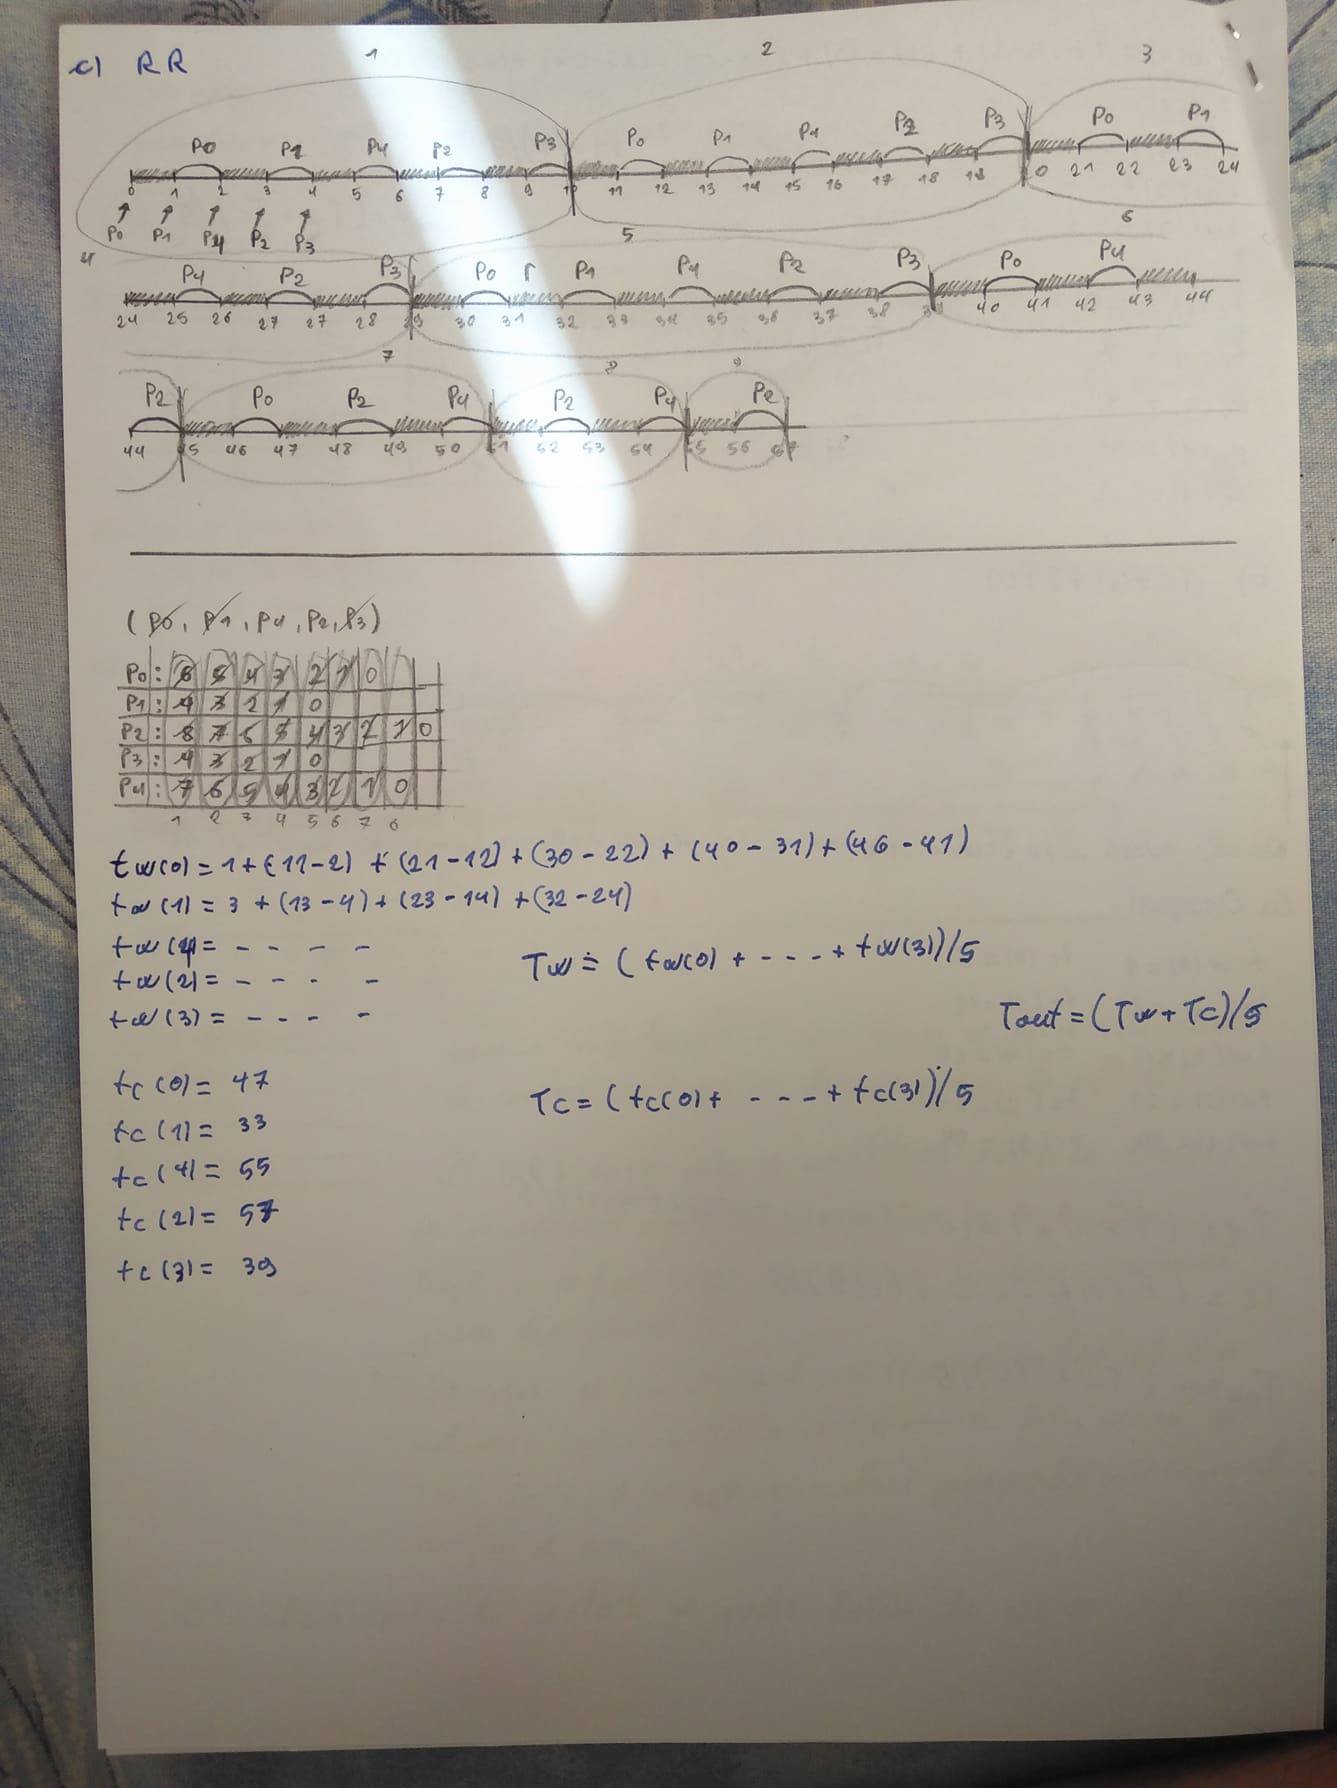 c) RR
1 2 3
P0 P1 P4 P2 P3 P0 P1 P4 P2 P3 P0 P1
0 1 2 3 4 5 6 7 8 9 10 11 12 13 14 15 16 17 18 19 20 21 22 23 24
P0 P1 P4 P2 P3
4 5 6
P4 P2 P3 P0 P1 P4 P2 P3 P0 P4
24 25 26 27 27 28 29 30 31 32 33 34 35 36 37 38 39 40 41 42 43 44
7 8 9
P2 P0 P2 P4 P2 P4 P2
44 45 46 47 48 49 50 51 52 53 54 55 56 57
(P0, P1, P4, P2, P3)
P0: 6 5 4 3 2 1 0
P1: 4 3 2 1 0
P2: 8 7 6 5 4 3 2 1 0
P3: 4 3 2 1 0
P4: 7 6 5 4 3 2 1 0
1 2 3 4 5 6 7 8
tw(0) = 1+(11-2) + (21-12) + (30-22) + (40-31) + (46-41)
tw(1) = 3 + (13-4) + (23-14) + (32-24)
tw(4) = - - - -
tw(2) = - - - -
Tw = (tw(0) + - - - + tw(3))/5
tw(3) = - - - -
Tout = (Tw + Tc)/5
tc(0) = 47
Tc = (tc(0) + - - - + tc(3))/5
tc(1) = 33
tc(4) = 55
tc(2) = 57
tc(3) = 39